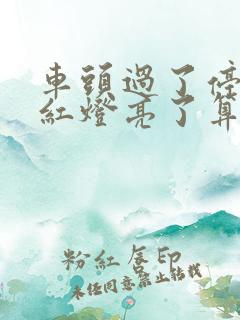 車頭過了停
紅燈亮了算
粉紅唇印
未经同意禁止转载